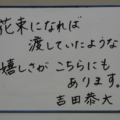 花束になれば
渡していたような
嬉しさがこちらにも
あります。
吉田恭大